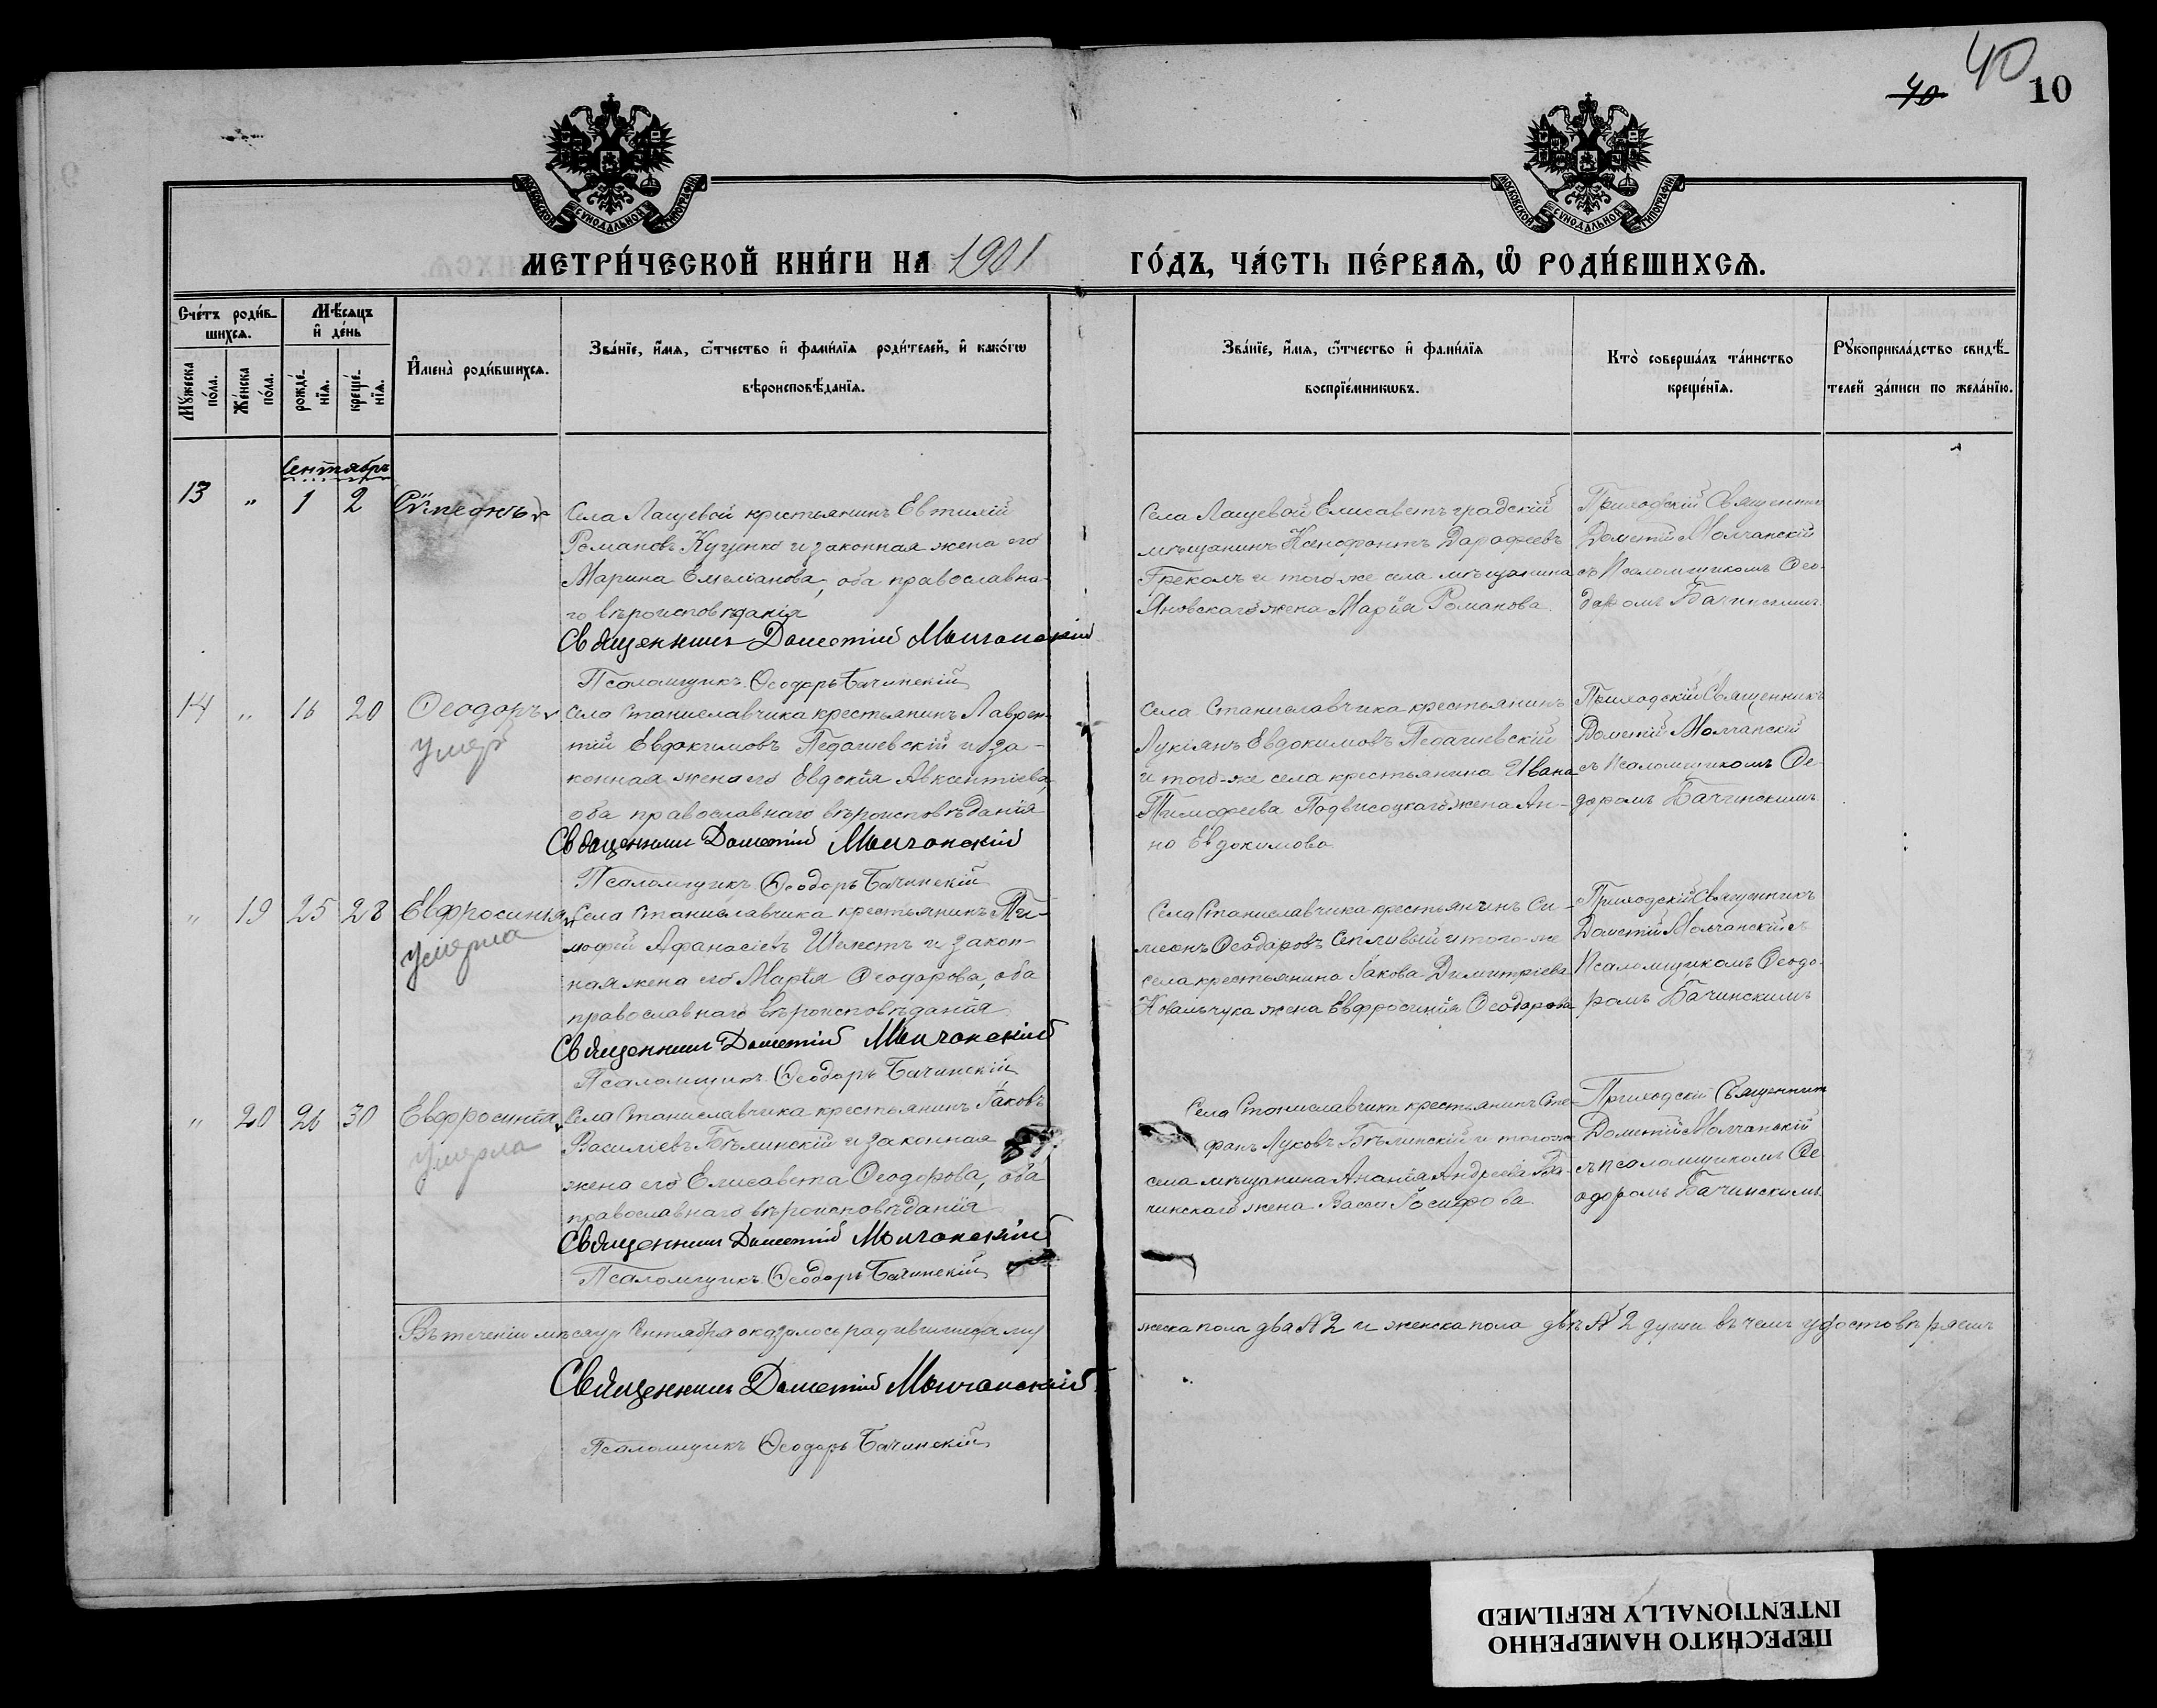 40 40 10
МОСКОВСКОЙ СѴНОДАЛЬНОЙ ТИПОГРАФІИ
МОСКОВСКОЙ СѴНОДАЛЬНОЙ ТИПОГРАФІИ
МЕТРИ́ЧЕСКОЙ КНИ́ГИ НА 1901 ГО́ДЪ, ЧА́СТЬ ПЕ́РВАѦ, Ѡ РОДИ́ВШИХСѦ.
Сче́тъ роди́в-
шихсѧ.
Мꙋ́жеска по́ла.
Же́нска по́ла.
Мѣ́сѧцъ
и де́нь
рожде́-
нїѧ.
креще́-
нїѧ.
Имена̀ роди́вшихсѧ.
Зва́нїе, и́мѧ, ѻ́тчество и фами́лїѧ роди́телей, и како́гѡ
вѣроисповѣ́данїѧ.
Зва́нїе, и́мѧ, ѻ́тчество и фами́лїѧ
воспрїе́мникѡвъ.
Кто̀ соверша́лъ та́инство
креще́нїѧ.
Рꙋкоприкла́дство свидѣ́-
телей за́писи по жела́нїю.
Сентябрь
13 " 1 2 Сѵмеонъ
Села Лащевой крестьянинъ Евтихій
Романовъ Куценко и законная жена его
Марина Емеліанова, оба православна-
го вѣроисповѣданія
Священникъ Дометій Молчанскій
Псаломщикъ Ѳеодоръ Бачинскій
Села Лащевой Елисаветъградскій
мѣщанинъ Ксенофонтъ Дарофеевъ
Грекомъ и того-же села мѣщанина
Яновскаго жена Марія Романова.
Приходскій Священникъ
Дометій Молчанскій
съ Псаломщикомъ Ѳео-
доромъ Бачинскимъ
14 " 16 20 Ѳеодоръ
умеръ
Села Станиславчика крестьянинъ Лаврен-
тій Евдокимовъ Педашевскій и за-
конная жена его Евдокія Авксентіева,
оба православнаго вѣроисповѣданія
Священникъ Дометій Молчанскій
Псаломщикъ Ѳеодоръ Бачинскій
Села Станиславчика крестьянинъ
Лукіянъ Евдокимовъ Педашевскій
и того-же села крестьянина Ивана
Тимофеева Подвисоцкаго жена Ан-
на Евдокимова
Приходскій Священникъ
Дометій Молчанскій
съ Псаломщикомъ Ѳе-
доромъ Бачинскимъ
" 19 25 28 Евфросинія
умерла
Села Станиславчика крестьянинъ Ти-
мофей Афанасіевъ Шелестъ и закон-
ная жена его Марія Ѳеодорова, оба
православнаго вѣроисповѣданія
Священникъ Дометій Молчанскій
Псаломщикъ Ѳеодоръ Бачинскій
Села Станиславчика крестьянинъ Си-
меонъ Ѳеодоровъ и того-же
села крестьянина Іакова Димитріева
Ковальчука жена Евфросинія Ѳеодорова
Приходскій Священникъ
Дометій Молчанскій съ
Псаломщикомъ Ѳеодо-
ромъ Бачинскимъ
" 20 26 30 Евфросинія
умерла
Села Станиславчика крестьянинъ Іаковъ
Василіевъ Бѣлинскій и законная
жена его Елисавета Ѳеодорова, оба
православнаго вѣроисповѣданія
Священникъ Дометій Молчанскій
Псаломщикъ Ѳеодоръ Бачинскій
Села Станиславчика крестьянинъ Сте-
фанъ Луковъ Бѣлинскій и того-же
села мѣщанина Ананія Андреева Ба-
чинскаго жена Васса Іосифова.
Приходскій Священникъ
Дометій Молчанскій
съ псаломщикомъ Ѳе-
одоромъ Бачинскимъ
Въ теченіи мѣсяца Сентября оказалось родившихся му жеска пола два № 2 и женска пола двѣ № 2 души въ чемъ удостовѣряемъ
Священникъ Дометій Молчанскій
Псаломщикъ Ѳеодоръ Бачинскій
ПЕРЕСНЯТО НАМЕРЕННО
INTENTIONALLY REFILMED